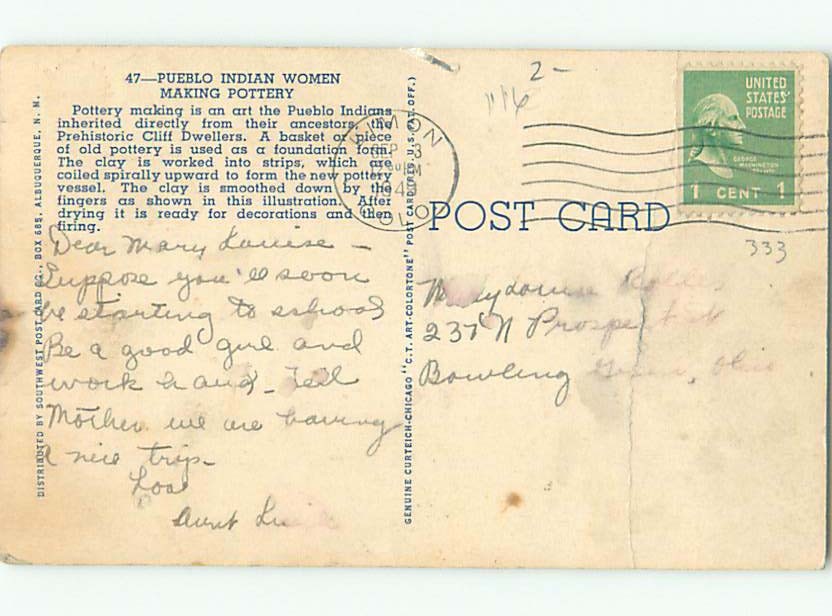 47—PUEBLO INDIAN WOMEN
MAKING POTTERY
Pottery making is an art the Pueblo Indians
inherited directly from their ancestors, the
Prehistoric Cliff Dwellers. A basket or piece
of old pottery is used as a foundation form.
The clay is worked into strips, which are
coiled spirally upward to form the new pottery
vessel. The clay is smoothed down by the
fingers as shown in this illustration. After
drying it is ready for decorations and then
firing.
Dear Mary Louise –
Suppose you'll soon
be starting to school
Be a good girl and
work hard – Tell
Mother we are having
a nice trip –
Aunt
DISTRIBUTED BY SOUTHWEST POST CARD CO., BOX 685, ALBUQUERQUE, N. M.
GENUINE CURTEICH-CHICAGO "C.T. ART-COLORTONE" POST CARD (REG. U.S. PAT. OFF.)
2–
116
SEP 3
PM
COLO
UNITED
STATES
POSTAGE
GEORGE
WASHINGTON
1 CENT 1
POST CARD
333
Mary Louise
237 N Prospect
Bowling Green, Ohio